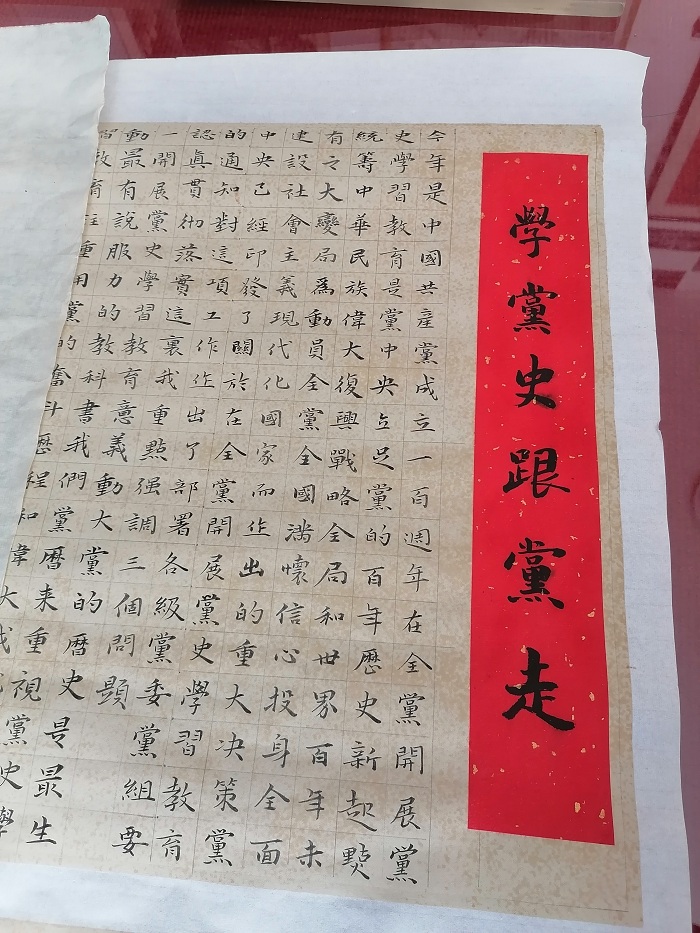 學黨史跟黨走
今年是中國共產黨成立一百週年在全黨開展黨
史學習教育是黨中央立足黨的百年歷史新起點
統籌中華民族偉大復興戰略全局和世界百年未
有之大變局為動員全黨全國滿懷信心投身全面
建設社會主義現代化國家而作出的重大决策黨
中央已經印發了關於在全黨開展黨史學習教育
的通知對這項工作作出了部署各級黨委黨組要
認真貫彻落實這裏我重點强調三個問題
一開展黨史學習教育意義動大黨的曆史是最生
動最有說服力的教科書我們黨曆来重視黨史學
習教育注重用黨的奮斗歷程和偉大成